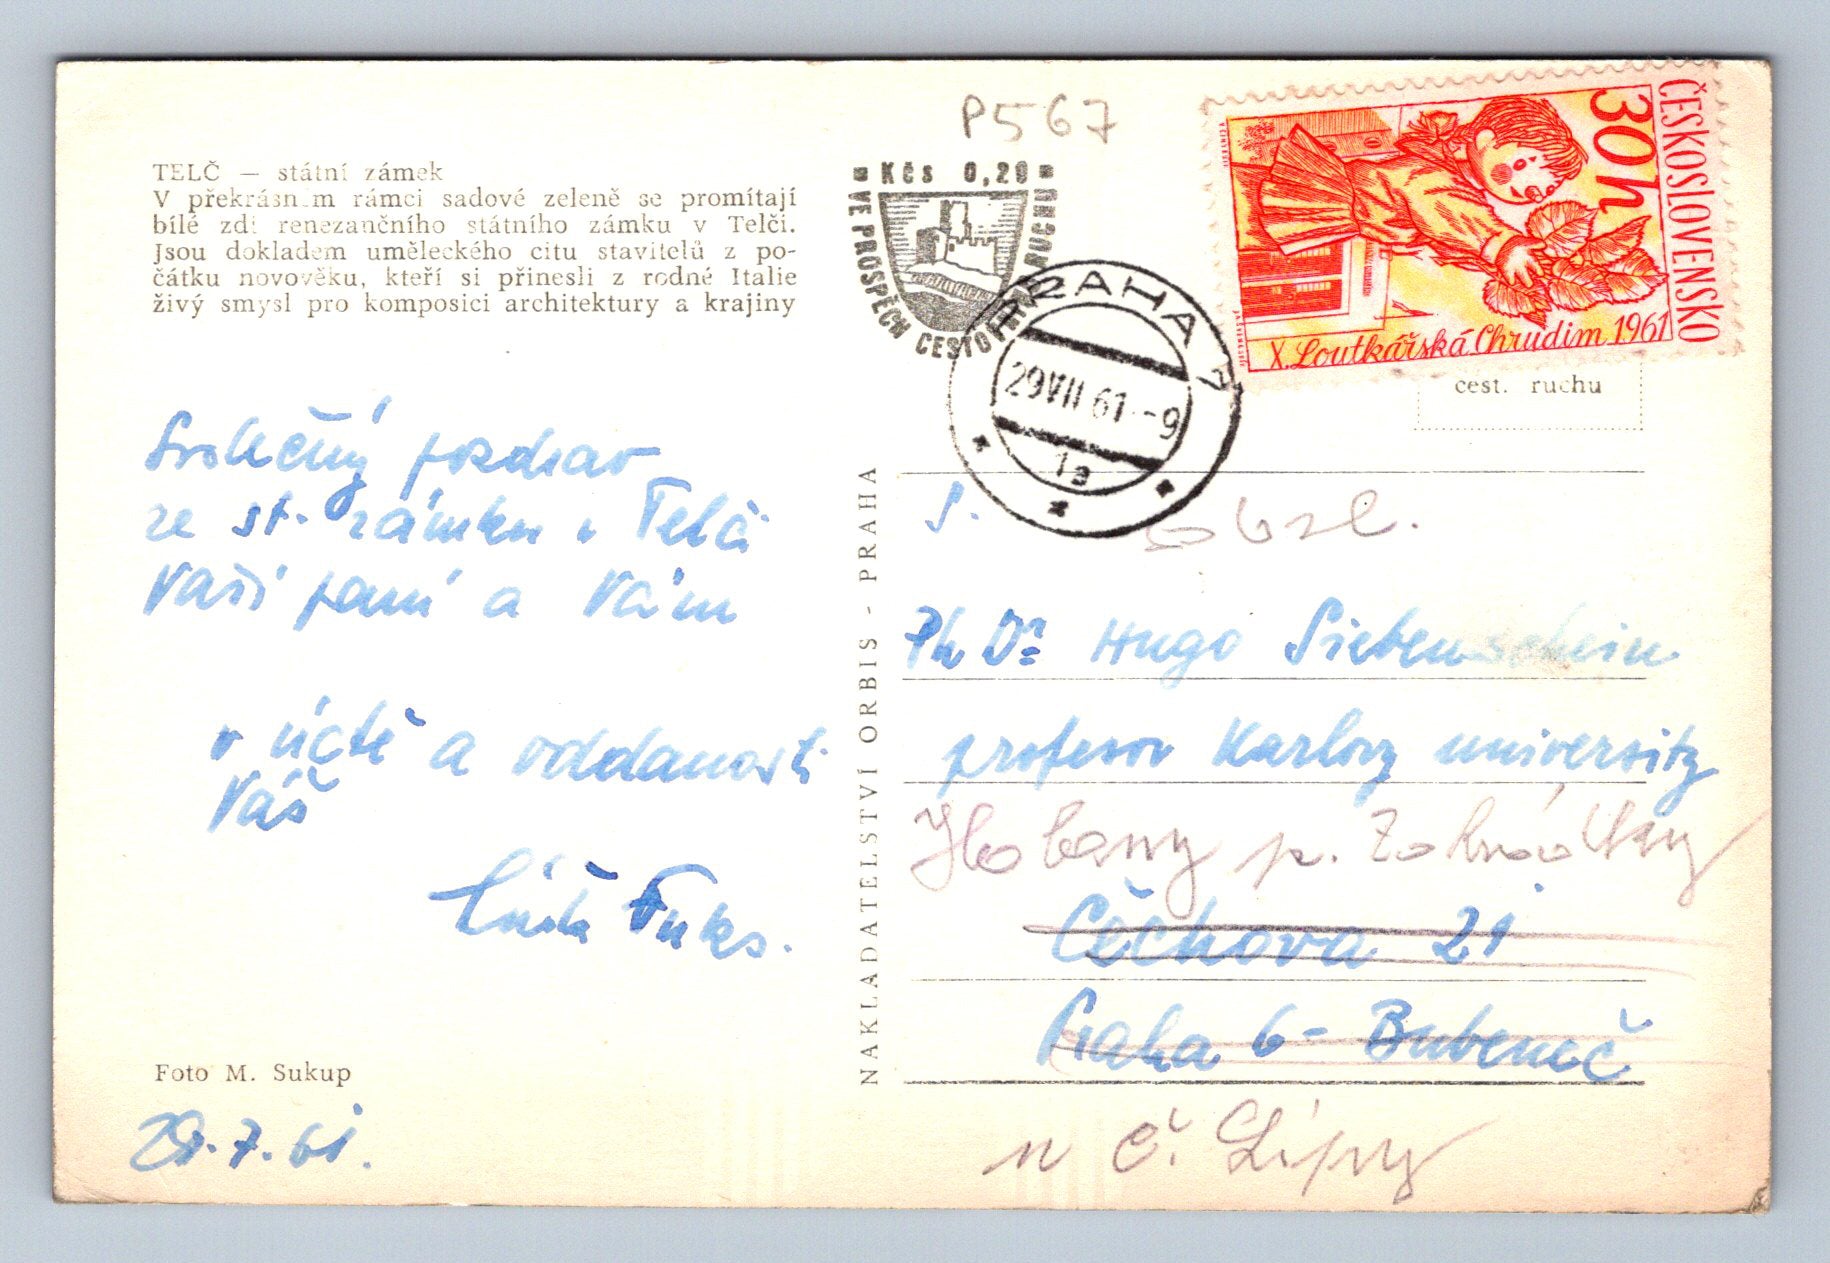 P567
TELČ — státní zámek
V překrásném rámci sadové zeleně se promítají
bílé zdi renezančního státního zámku v Telči.
Jsou dokladem uměleckého citu stavitelů z po-
čátku novověku, kteří si přinesli z rodné Italie
živý smysl pro komposici architektury a krajiny
Kčs 0,20
VE PROSPĚCH CESTOVNÍHO RUCHU
PRAHA 7
29 VII 61 -9
1a
ČESKOSLOVENSKO
30h
X. Loutkářská Chrudim 1961
cest. ruchu
Srdečný pozdrav
ze st. zámku v Telči
Vaší paní a Vám
v úctě a oddanosti
Váš
Fuks.
Foto M. Sukup
29.7.61.
NAKLADATELSTVÍ ORBIS - PRAHA
S.
PhDr Hugo Siebenschein
profesor Karlovy university
p.
Čechova 21
Praha 6 - Bubeneč
u Č. Lípy